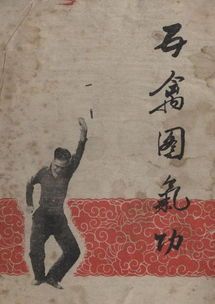 五禽图氣功